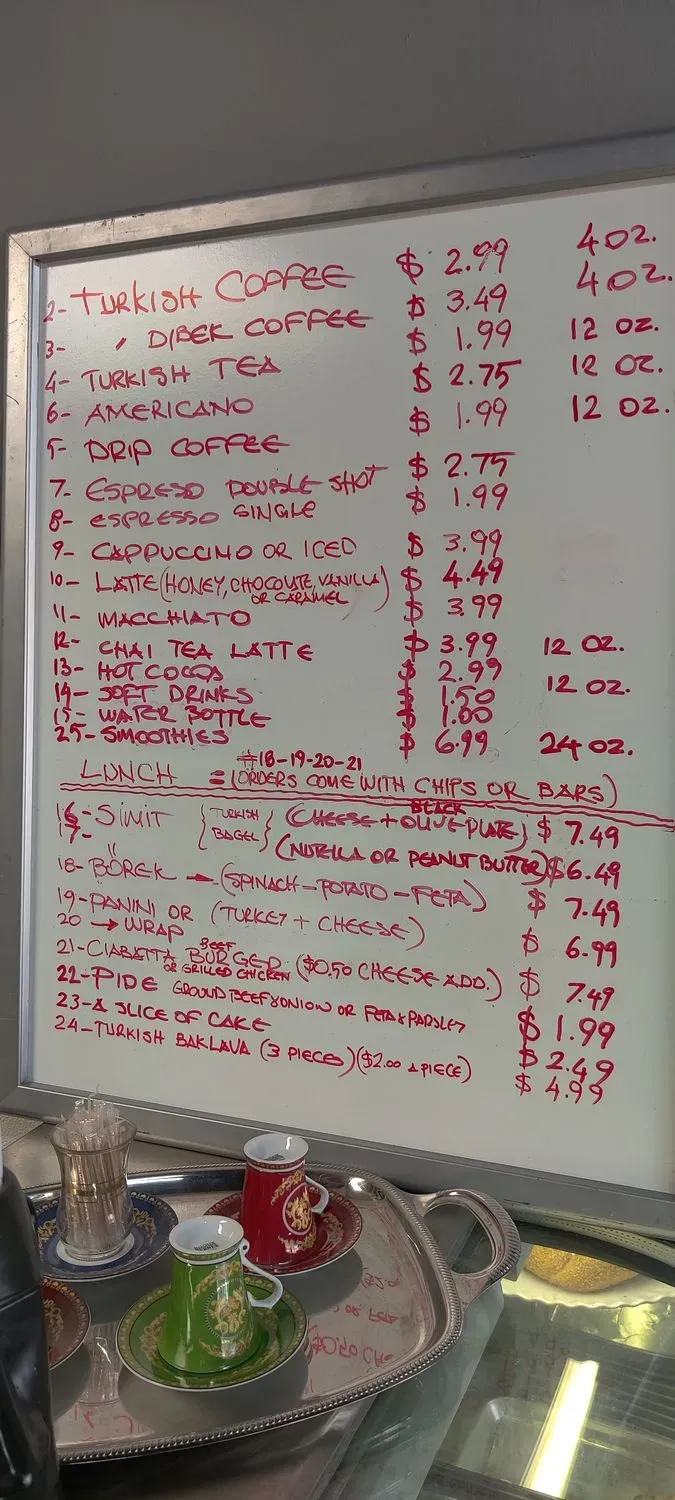 2- TURKISH COFFEE $ 2.99 4 OZ.
3- " DIBEK COFFEE $ 3.49 4 OZ.
4- TURKISH TEA $ 1.99 12 OZ.
6- AMERICANO $ 2.75 12 OZ.
5- DRIP COFFEE $ 1.99 12 OZ.
7- ESPRESO DOUBLE SHOT $ 2.75
8- ESPRESSO SINGLE $ 1.99
9- CAPPUCCINO OR ICED $ 3.99
10- LATTE (HONEY, CHOCOLATE, VANILLA $ 4.49
OR CARAMEL)
11- MACCHIATO $ 3.99
12- CHAI TEA LATTE $ 3.99 12 OZ.
13- HOT COCOA $ 2.99 12 OZ.
14- SOFT DRINKS $ 1.50
15- WATER BOTTLE $ 1.00
25- SMOOTHIES $ 6.99 24 OZ.
#18-19-20-21
LUNCH = (ORDERS COME WITH CHIPS OR BARS)
BLACK
16- SIMIT {TURKISH BAGEL} (CHEESE + OLIVE PLATE) $ 7.49
17- (NUTELLA OR PEANUT BUTTER) $ 6.49
18- BÖREK → (SPINACH - POTATO - FETA) $ 7.49
19- PANINI OR (TURKEY + CHEESE) $ 6.99
20 → WRAP
BEEF
21- CIABATTA BURGED ($0.50 CHEESE ADD.) $ 7.49
OR GRILLED CHICKEN
22- PIDE GROUND BEEF & ONION OR FETA & PARSLEY $ 1.99
23- A SLICE OF CAKE $ 2.49
24- TURKISH BAKLAVA (3 PIECES) ($2.00 A PIECE) $ 4.99